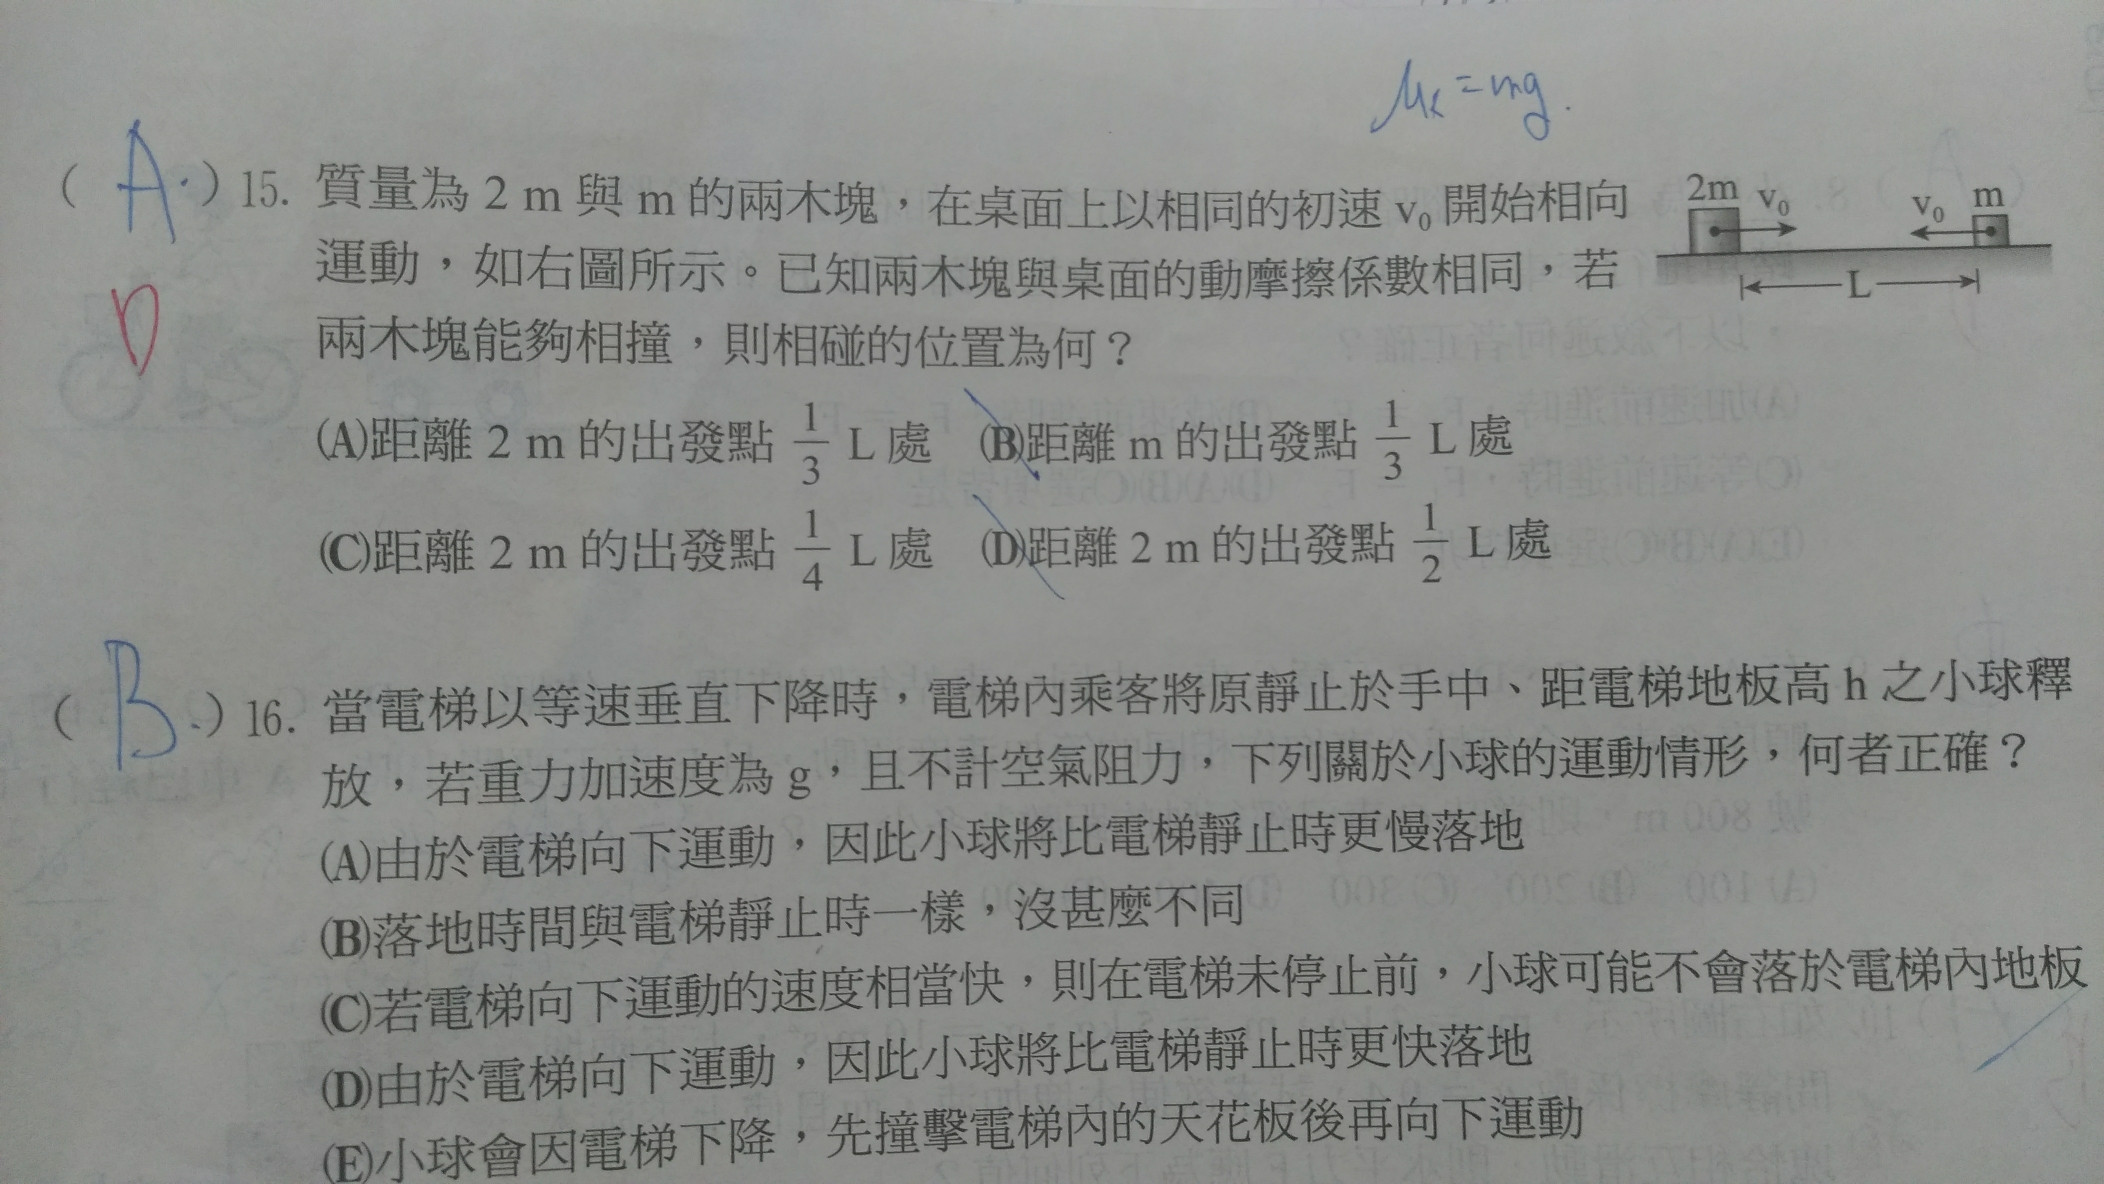 μk = mg.
( A. ) 15. 質量為 2 m 與 m 的兩木塊，在桌面上以相同的初速 v₀ 開始相向
2m v₀ v₀ m
運動，如右圖所示。已知兩木塊與桌面的動摩擦係數相同，若
L
D
兩木塊能夠相撞，則相碰的位置為何？
(A)距離 2 m 的出發點 1/3 L 處 (B)距離 m 的出發點 1/3 L 處
(C)距離 2 m 的出發點 1/4 L 處 (D)距離 2 m 的出發點 1/2 L 處
( B. ) 16. 當電梯以等速垂直下降時，電梯內乘客將原靜止於手中、距電梯地板高 h 之小球釋
放，若重力加速度為 g，且不計空氣阻力，下列關於小球的運動情形，何者正確？
(A)由於電梯向下運動，因此小球將比電梯靜止時更慢落地
(B)落地時間與電梯靜止時一樣，沒甚麼不同
(C)若電梯向下運動的速度相當快，則在電梯未停止前，小球可能不會落於電梯內地板
(D)由於電梯向下運動，因此小球將比電梯靜止時更快落地
(E)小球會因電梯下降，先撞擊電梯內的天花板後再向下運動